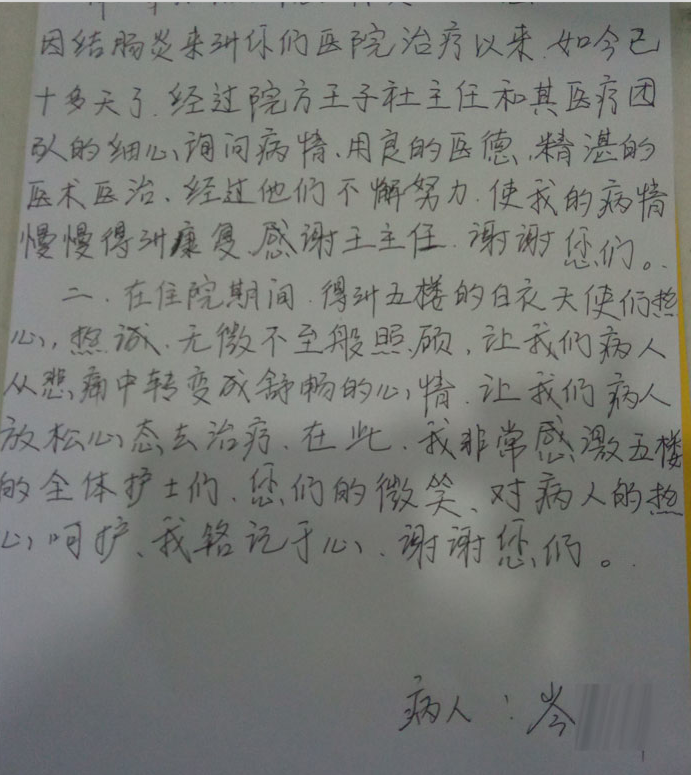 因结肠炎来到你们医院治疗以来.如今已
十多天了.经过院方王子社主任和其医疗团
队的细心询问病情、用良的医德、精湛的
医术医治、经过他们不懈努力.使我的病情
慢慢得到康复、感谢王主任.谢谢您们。
二.在住院期间.得到五楼的白衣天使们热
心,热诚.无微不至般照顾,让我们病人
从悲痛中转变成舒畅的心情.让我们病人
放松心态去治疗.在此.我非常感激五楼
的全体护士们、您们的微笑、对病人的热
心呵护、我铭记于心、谢谢您们。
病人:岑